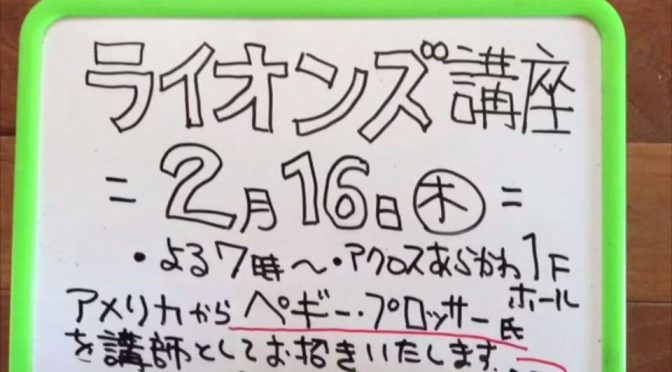 ライオンズ講座
=2月16日㊍=
・よる7時〜・アクロスあらかわ1Fホール
アメリカからペギー・プロッサー氏
を講師としてお招きいたします。